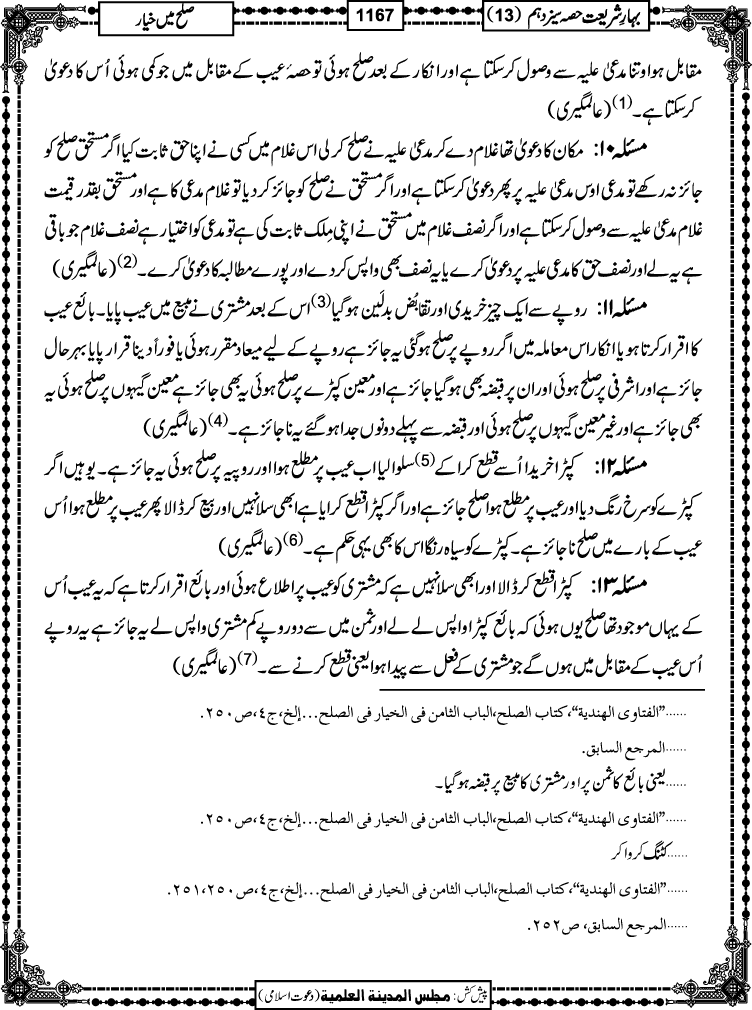 بہارِ شریعت حصہ سیزدہم (13)
1167
صلح میں خیار
مقابل ہوا وتنا مدعیٰ علیہ سے وصول کرسکتا ہے اور انکار کے بعد صلح ہوئی تو حصۂ عیب کے مقابل میں جو کمی ہوئی اُس کا دعویٰ
کرسکتا ہے۔(1) (عالمگیری)
مسئلہ ۱۰: مکان کا دعویٰ تھا غلام دے کر مدعیٰ علیہ نے صلح کر لی اس غلام میں کسی نے اپنا حق ثابت کیا اگر مستحق صلح کو
جائز نہ رکھے تو مدعی اوس مدعیٰ علیہ پر پھر دعویٰ کرسکتا ہے اور اگر مستحق نے صلح کو جائز کردیا تو غلام مدعی کا ہے اور مستحق بقدر قیمت
غلام مدعیٰ علیہ سے وصول کرسکتا ہے اور اگر نصف غلام میں مستحق نے اپنی مِلک ثابت کی ہے تو مدعی کو اختیار ہے نصف غلام جو باقی
ہے یہ لے اور نصف حق کا مدعی علیہ پر دعویٰ کرے یا یہ نصف بھی واپس کردے اور پورے مطالبہ کا دعویٰ کرے۔(2) (عالمگیری)
مسئلہ ۱۱: روپے سے ایک چیز خریدی اور تقابُض بدلَین ہوگیا(3) اس کے بعد مشتری نے مبیع میں عیب پایا۔ بائع عیب
کا اقرار کرتا ہو یا انکار اس معاملہ میں اگر روپے پر صلح ہوگئی یہ جائز ہے روپے کے لیے میعاد مقرر ہوئی یا فوراً دینا قرار پایا بہرحال
جائز ہے اور اشرفی پر صلح ہوئی اور ان پر قبضہ بھی ہوگیا جائز ہے اور معین کپڑے پر صلح ہوئی یہ بھی جائز ہے معین گیہوں پر صلح ہوئی یہ
بھی جائز ہے اور غیر معین گیہوں پر صلح ہوئی اور قبضہ سے پہلے دونوں جدا ہوگئے یہ ناجائز ہے۔(4) (عالمگیری)
مسئلہ ۱۲: کپڑا خریدا اُسے قطع کرا کے(5) سلوا لیا اب عیب پر مطلع ہوا اور روپیہ پر صلح ہوئی یہ جائز ہے۔ یوہیں اگر
کپڑے کو سرخ رنگ دیا اور عیب پر مطلع ہوا صلح جائز ہے اور اگر کپڑا قطع کرایا ہے ابھی سلا نہیں اور بیع کر ڈالا پھر عیب پر مطلع ہوا اُس
عیب کے بارے میں صلح ناجائز ہے۔ کپڑے کو سیاہ رنگا اس کا بھی یہی حکم ہے۔(6) (عالمگیری)
مسئلہ ۱۳: کپڑا قطع کر ڈالا اور ابھی سلا نہیں ہے کہ مشتری کو عیب پر اطلاع ہوئی اور بائع اقرار کرتا ہے کہ یہ عیب اُس
کے یہاں موجود تھا صلح یوں ہوئی کہ بائع کپڑا واپس لے لے اور ثمن میں سے دو روپے کم مشتری واپس لے یہ جائز ہے یہ روپے
اُس عیب کے مقابل میں ہوں گے جو مشتری کے فعل سے پیدا ہوا یعنی قطع کرنے سے۔(7) (عالمگیری)
......”الفتاوی الھندیة“، کتاب الصلح، الباب الثامن فی الخیار فی الصلح...إلخ، ج٤، ص٢٥٠.
......المرجع السابق.
......یعنی بائع کا ثمن پر اور مشتری کا مبیع پر قبضہ ہو گیا۔
......”الفتاوی الھندیة“، کتاب الصلح، الباب الثامن فی الخیار فی الصلح...إلخ، ج٤، ص٢٥٠.
......کٹنگ کروا کر
......”الفتاوی الھندیة“، کتاب الصلح، الباب الثامن فی الخیار فی الصلح...إلخ، ج٤، ص٢٥٠، ٢٥١.
......المرجع السابق، ص٢٥٢.
پیش کش: مجلس المدینة العلمیة (دعوت اسلامی)